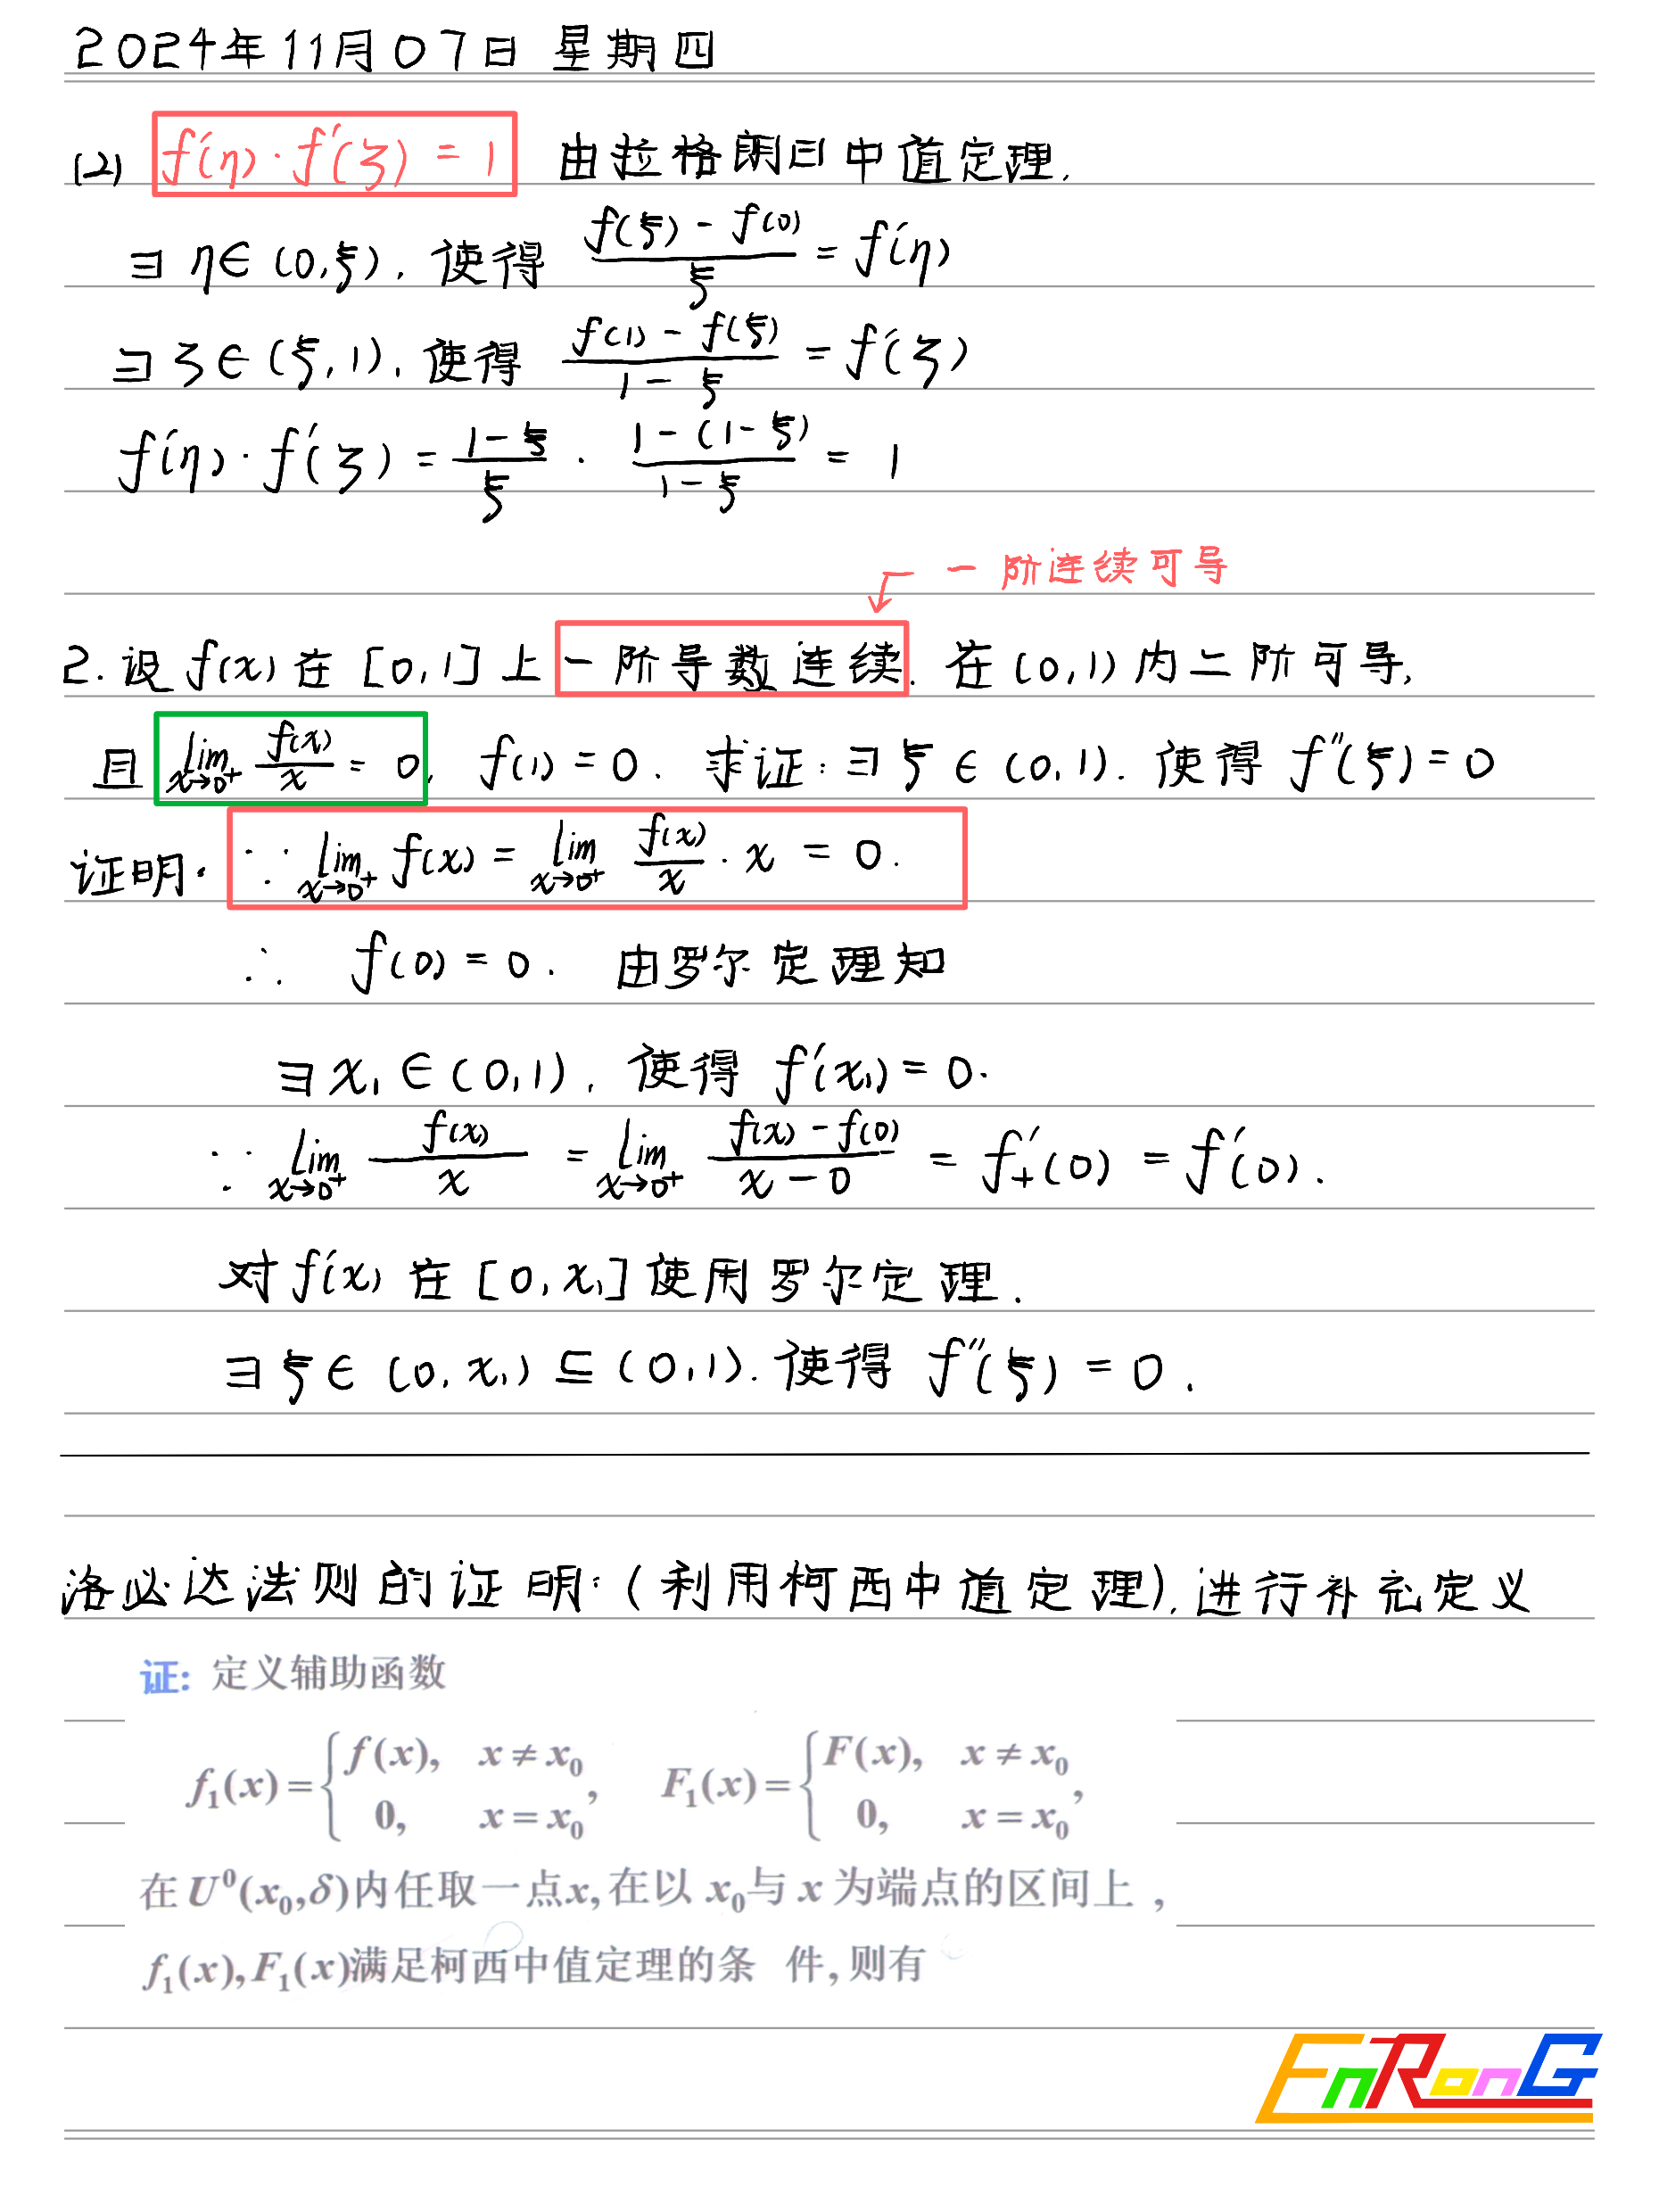 2024年11月07日 星期四
(2) f'(η)·f'(ζ) = 1 由拉格朗日中值定理.
∃ η∈(0,ξ), 使得 (f(ξ) - f(0))/ξ = f'(η)
∃ ζ∈(ξ,1), 使得 (f(1) - f(ξ))/(1-ξ) = f'(ζ)
f'(η)·f'(ζ) = (1-ξ)/ξ · (1-(1-ξ))/(1-ξ) = 1
一阶连续可导
2. 设 f(x) 在 [0,1] 上 一阶导数连续. 在 (0,1) 内二阶可导,
且 lim x→0⁺ f(x)/x = 0, f(1) = 0. 求证: ∃ ξ ∈ (0,1). 使得 f''(ξ) = 0
证明: ∵ lim x→0⁺ f(x) = lim x→0⁺ f(x)/x · x = 0.
∴ f(0) = 0. 由罗尔定理知
∃ x₁ ∈ (0,1), 使得 f'(x₁) = 0.
∵ lim x→0⁺ f(x)/x = lim x→0⁺ (f(x) - f(0))/(x-0) = f'₊(0) = f'(0).
对 f'(x) 在 [0, x₁] 使用罗尔定理.
∃ ξ ∈ (0, x₁) ⊆ (0,1). 使得 f''(ξ) = 0.
洛必达法则的证明: (利用柯西中值定理), 进行补充定义
证: 定义辅助函数
f₁(x) = { f(x), x ≠ x₀; 0, x = x₀ , F₁(x) = { F(x), x ≠ x₀; 0, x = x₀ ,
在 U⁰(x₀,δ)内任取一点x, 在以 x₀与 x 为端点的区间上 ,
f₁(x), F₁(x)满足柯西中值定理的条 件, 则有
EnRonG